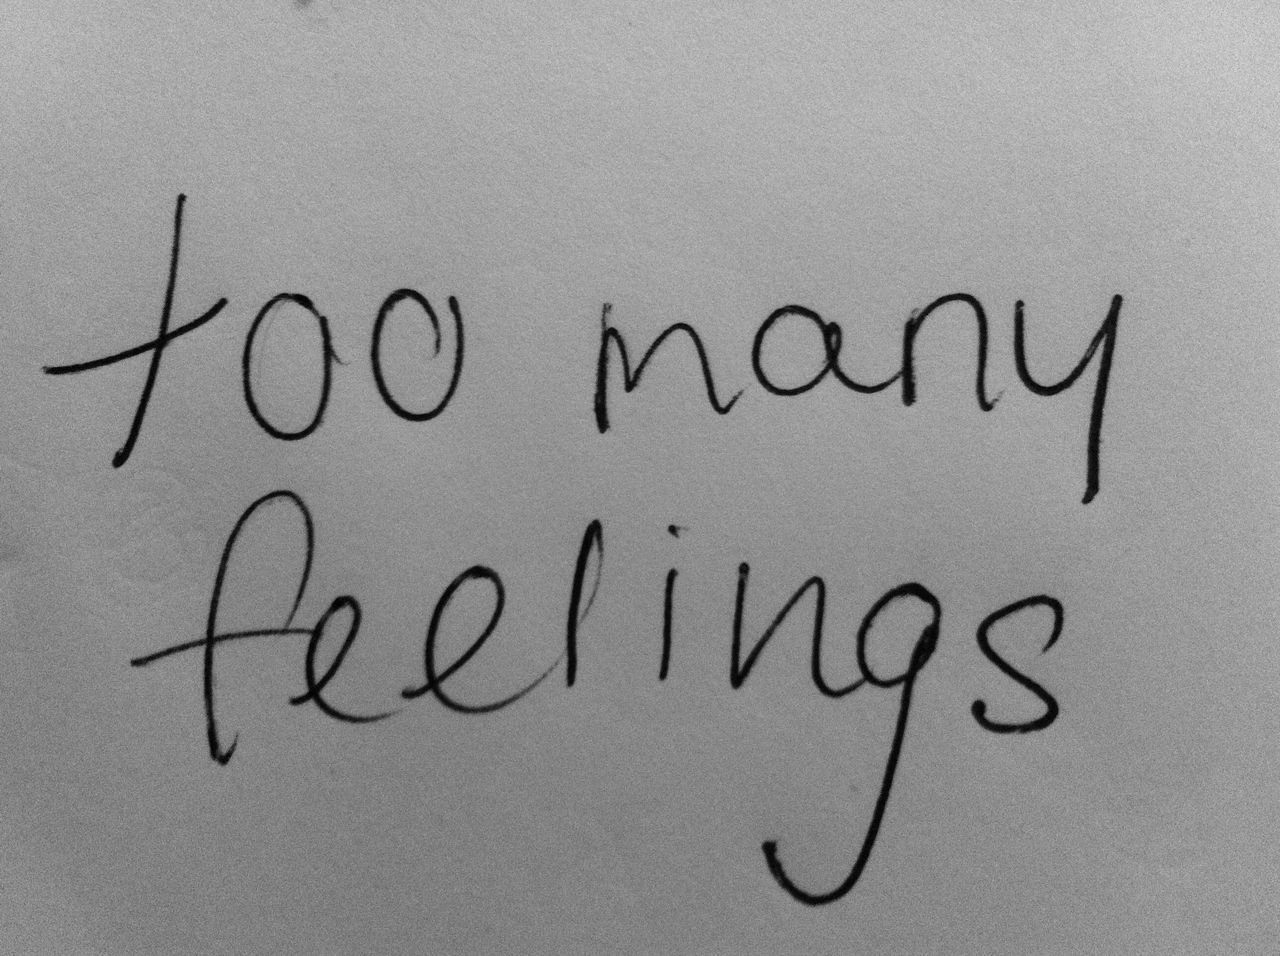 too many
feelings